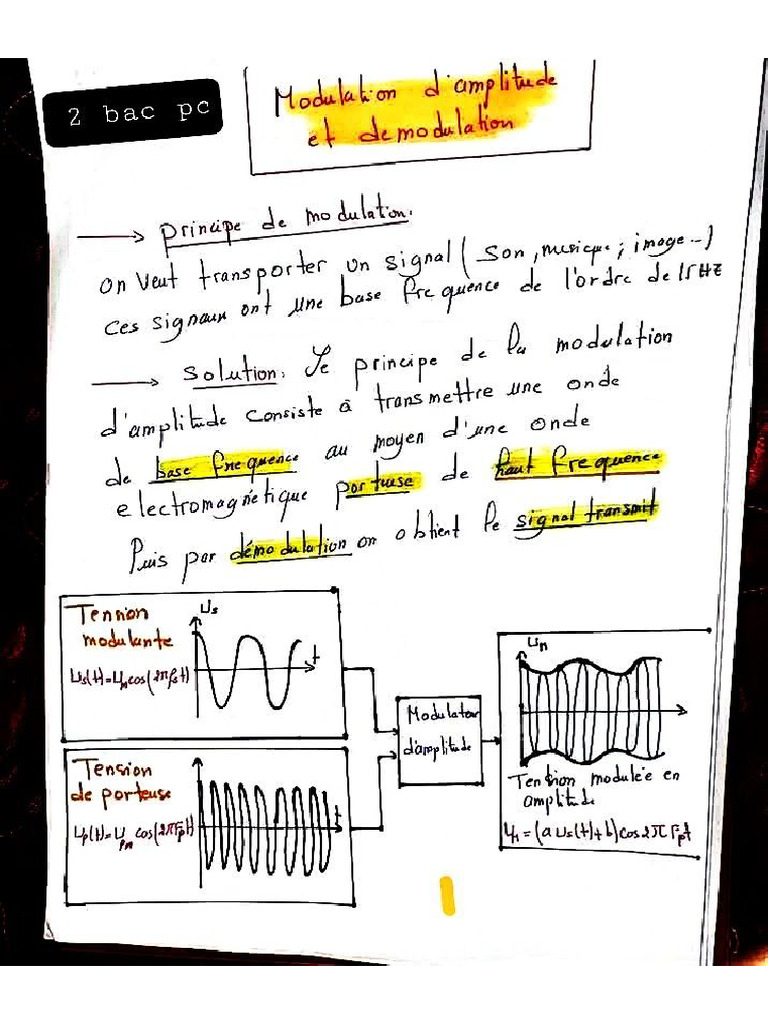 2 bac pc
Modulation d'amplitude
et demodulation
principe de modulation.
on veut transporter un signal ( son, musique ; image -- )
ces signaux ont une base frequence de l'ordre de 1kHZ
Solution. Le principe de la modulation
d'amplitude consiste à transmettre une onde
de base frequence au moyen d'une onde
electromagnétique portuse de haut frequence
Puis par démodulation on obtient le signal transmit
Tension
modulante
Us(t)=Um cos(2πfst)
Us
t
Tension
de porteuse
Up(t)=Upm cos(2πFpt)
t
Modulateur
d'amplitude
Um
Tension modulée en
amplitude
Um=(a Us(t)+b)cos2πFpt
1